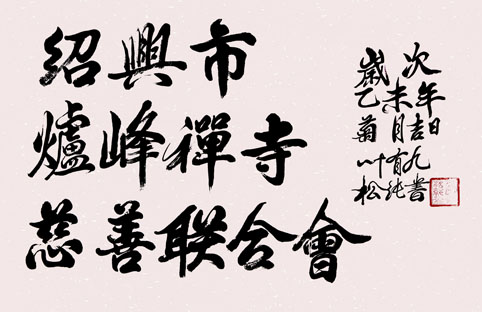 紹興市
爐峰禪寺
慈善联合會
歲次
乙未年
菊月吉日
八十有九
松纯書